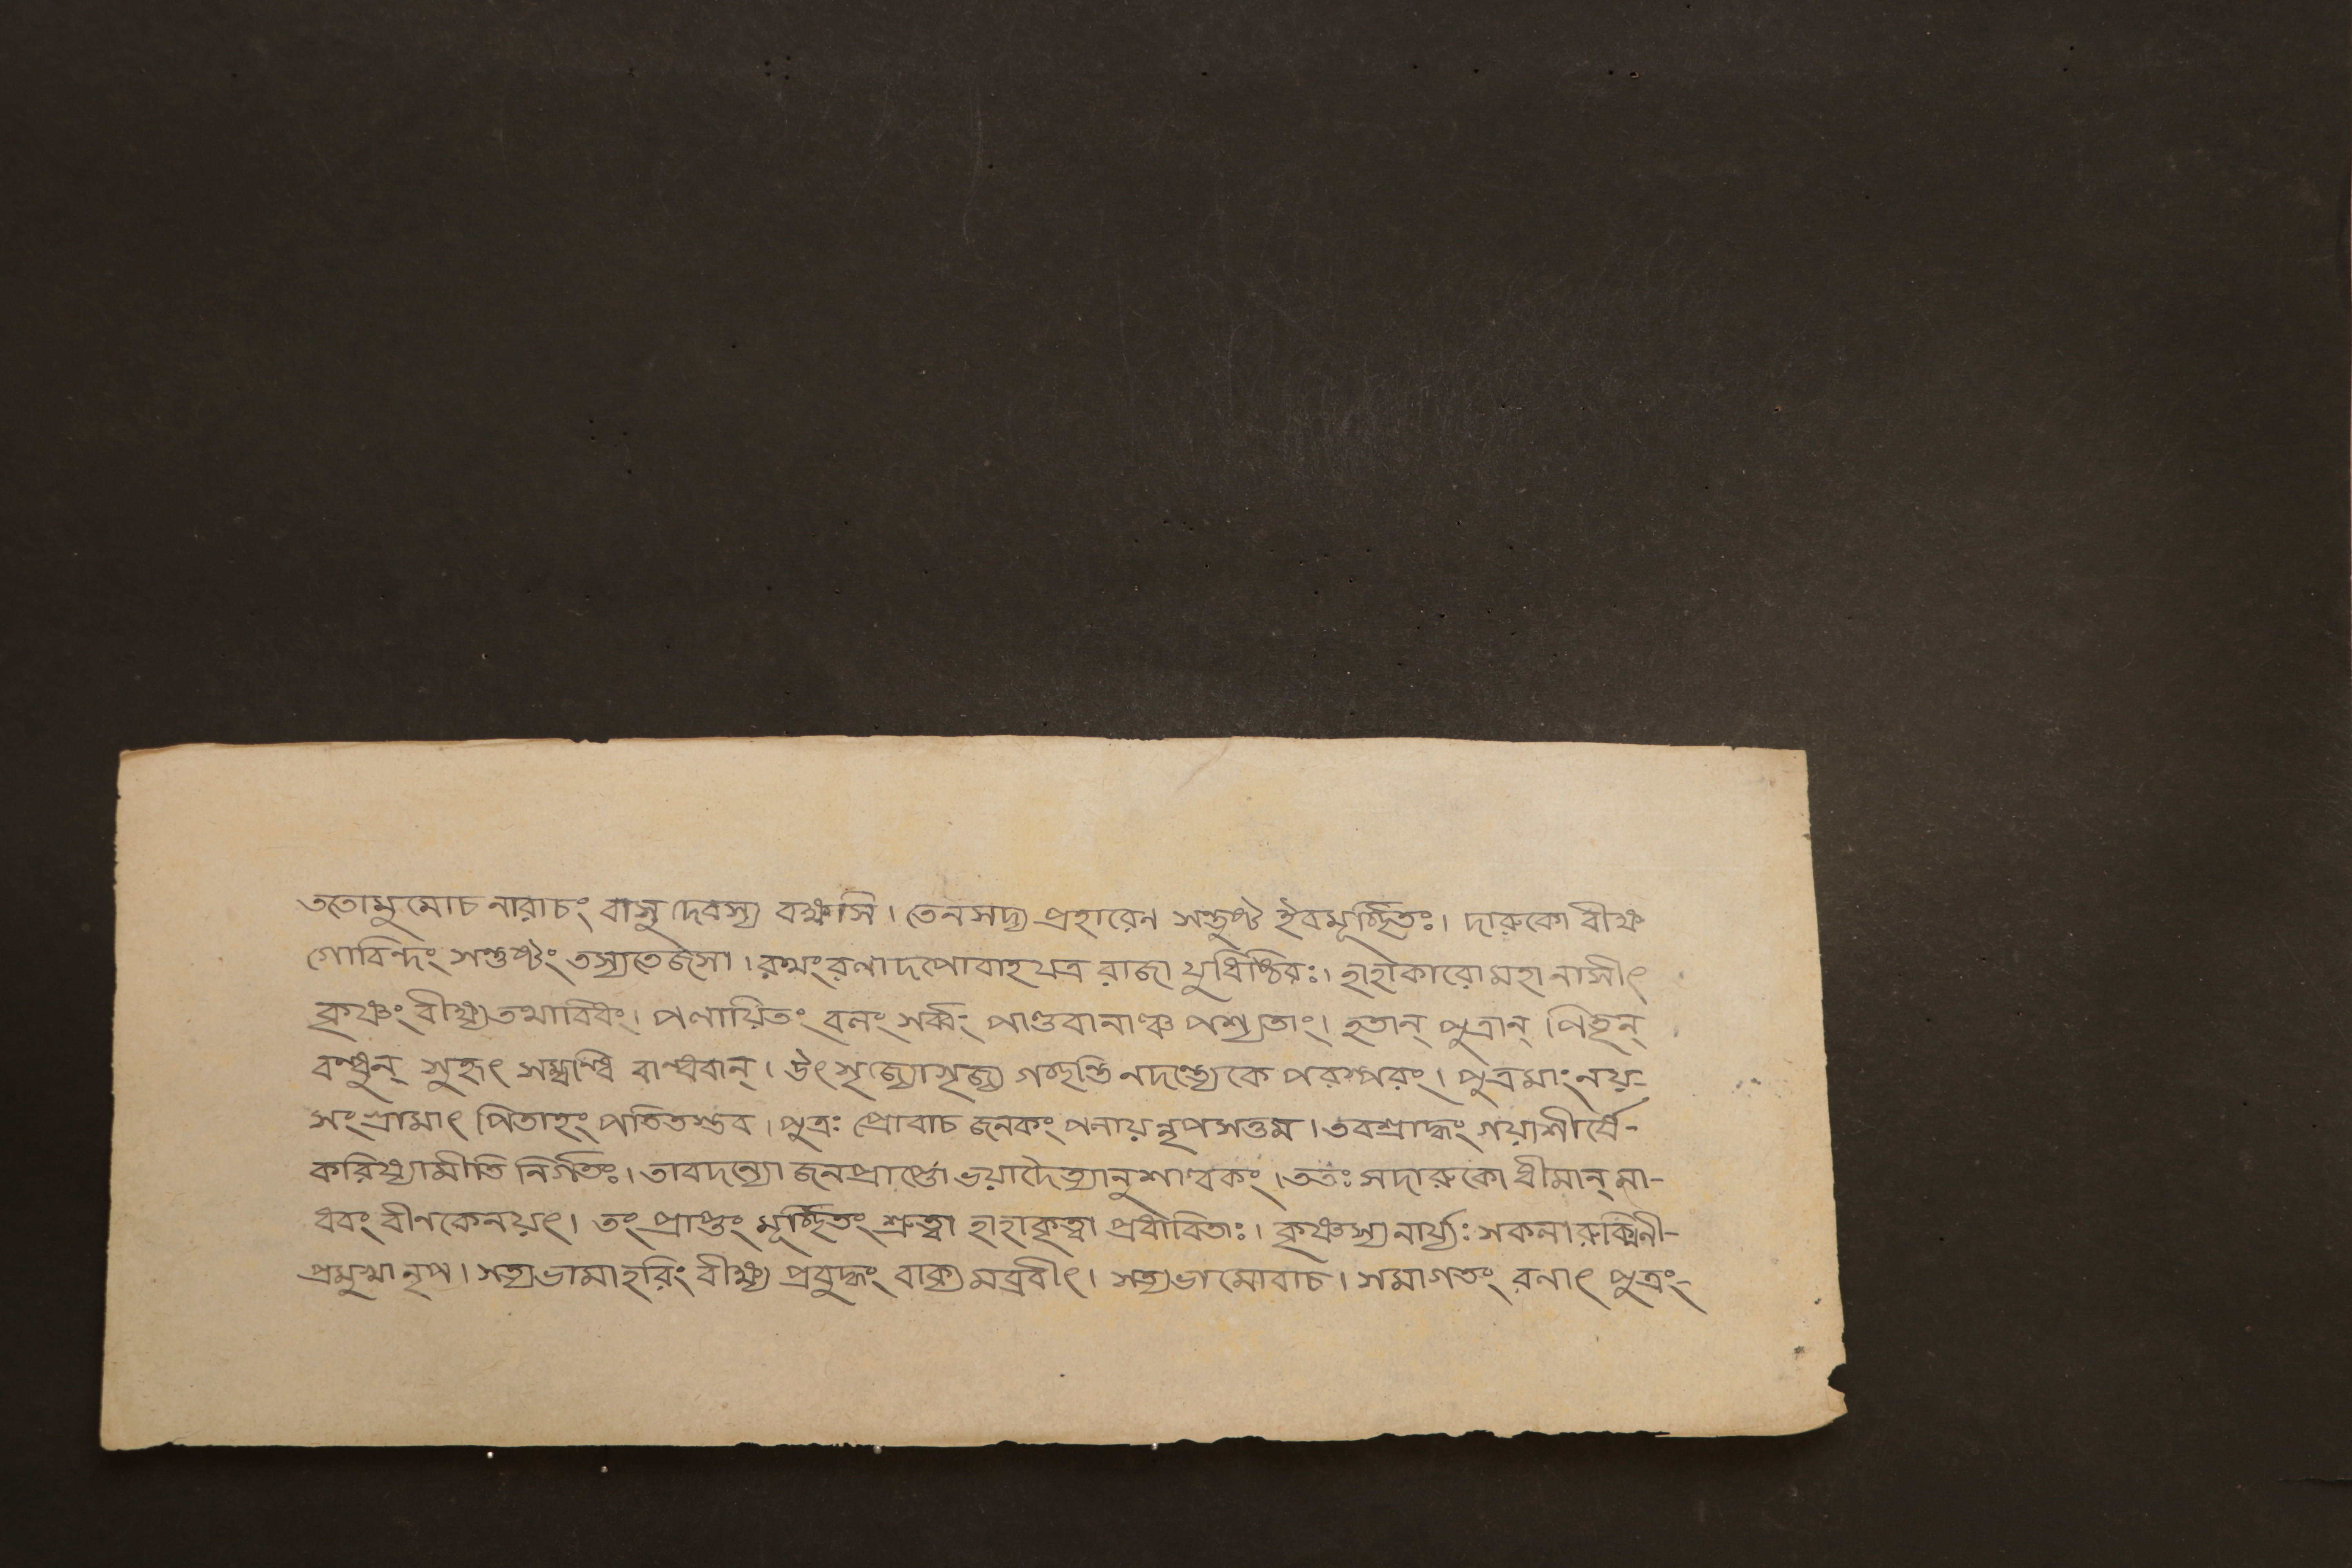 ততোমুমোচ নারাচং বাসুদেবস্য বক্ষসি। তেনসদ্য প্রহারেন সন্তুষ্ট ইবমূর্চ্ছিতঃ। দারুকো বীক্ষ
গোবিন্দং সন্তুষ্টং তস্যতেজসা। রথংরণাদপোবাহযত্র রাজা যুধিষ্ঠিরঃ। হাহাকারোমহানাসীৎ
কৃষ্ণং বীক্ষ্যতথাবিধং। পলায়িতং বলং সর্ব্বং পাণ্ডবানাঞ্চ পশ্যতাং। হতান্ পুত্রান্ পিতৃন্
বন্ধুন্ সুহৃৎ সম্বন্ধি বান্ধবান্। উৎসৃজ্যোসৃজ্য গচ্ছন্তি নদন্ত্যেকে পরস্পরং। পুত্রমাংনয়-
সংগ্রামাৎ পিতাহং পতিতস্তব। পুত্রঃ প্রোবাচ জনকং পলায়নৃপসত্তম। তবশ্রাদ্ধং গয়াশীর্ষে-
করিষ্যামীতি নির্গতঃ। তাবদন্যো জনপ্রার্প্তো ভয়াদৈত্যানুশাল্বকং। ততঃ সদারুকো ধীমান্ মা-
ধবং বীণকেনয়ৎ। তং প্রাপ্তং মূর্চ্ছিতং শ্রুত্বা হাহাকৃত্বা প্রধাবিতাঃ। কৃষ্ণস্যনার্য্যঃ সকলারুক্মিনী-
প্রমুখানৃপ। সত্যভামাহরিং বীক্ষ্য প্রবুদ্ধং বাক্যমব্রবীৎ। সত্যভামোবাচ। সমাগতং রনাৎ পুত্রং-